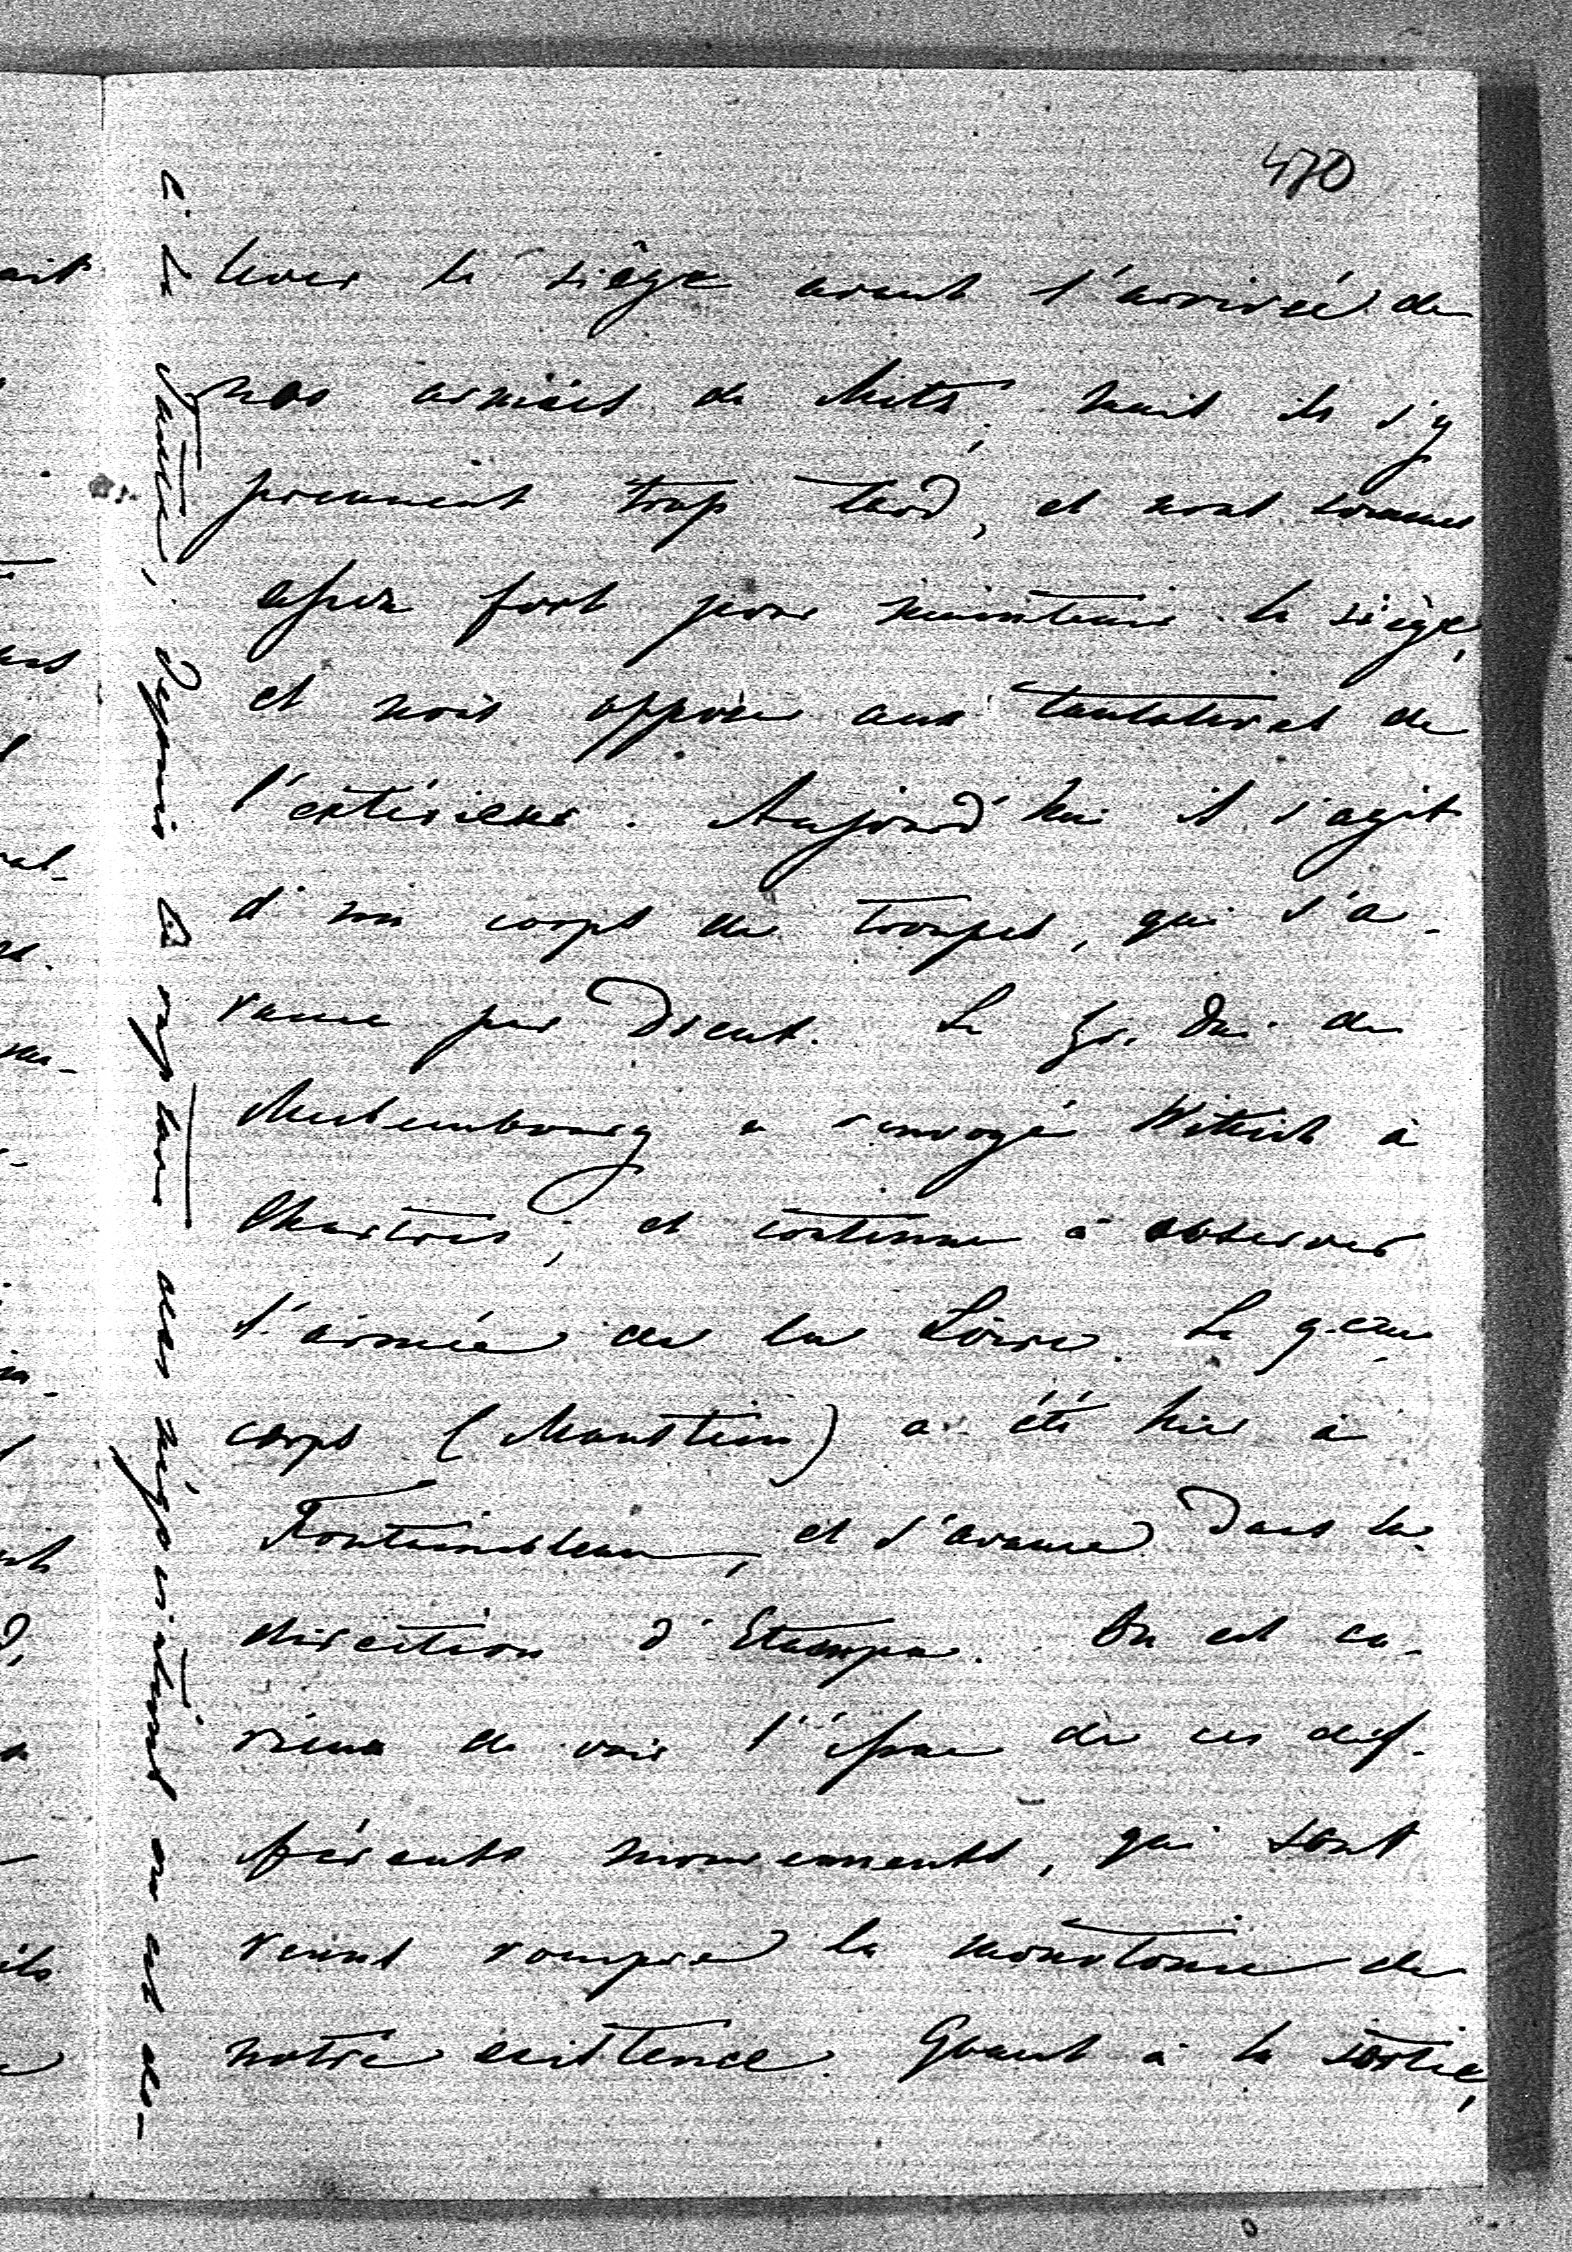 470
lever le siège avant l'arrivée de
nos armées de Metz; mais ils s'y
prennent trop tard, et nous sommes
assez fort pour maintenir le siège,
et nous opposer aux tentatives de
l'extérieur. Aujourd'hui il s'agit
d'un corps de troupes, qui s'a-
vance par Dreux. Le Gr. Duc de
Meclembourg a renvoyé Wittich à
Chartres, et continue à observer
l'armée de la Loire. Le 9-ème
corps (Manstein) a été hier à
Fontainebleau, et s'avance dans la
direction d'Etampes. On est cu-
rieux de voir l'issue de ces dif-
férents mouvements, qui sont
venus rompre la monotonie de
notre existence. Quant à la sortie,
depuis le ... des négociations